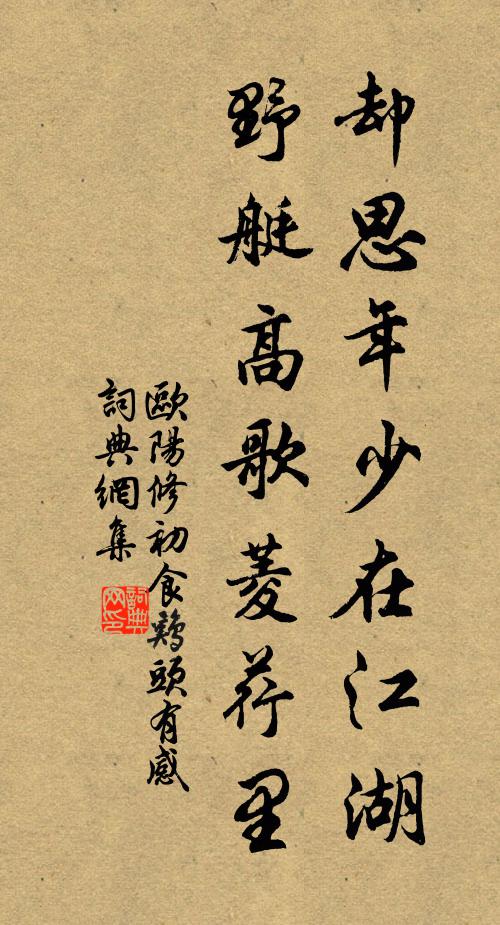 却思年少在江湖
野艇高歌菱荇里
歐陽修初食鶏頭有感
詞典網集
詞典网印